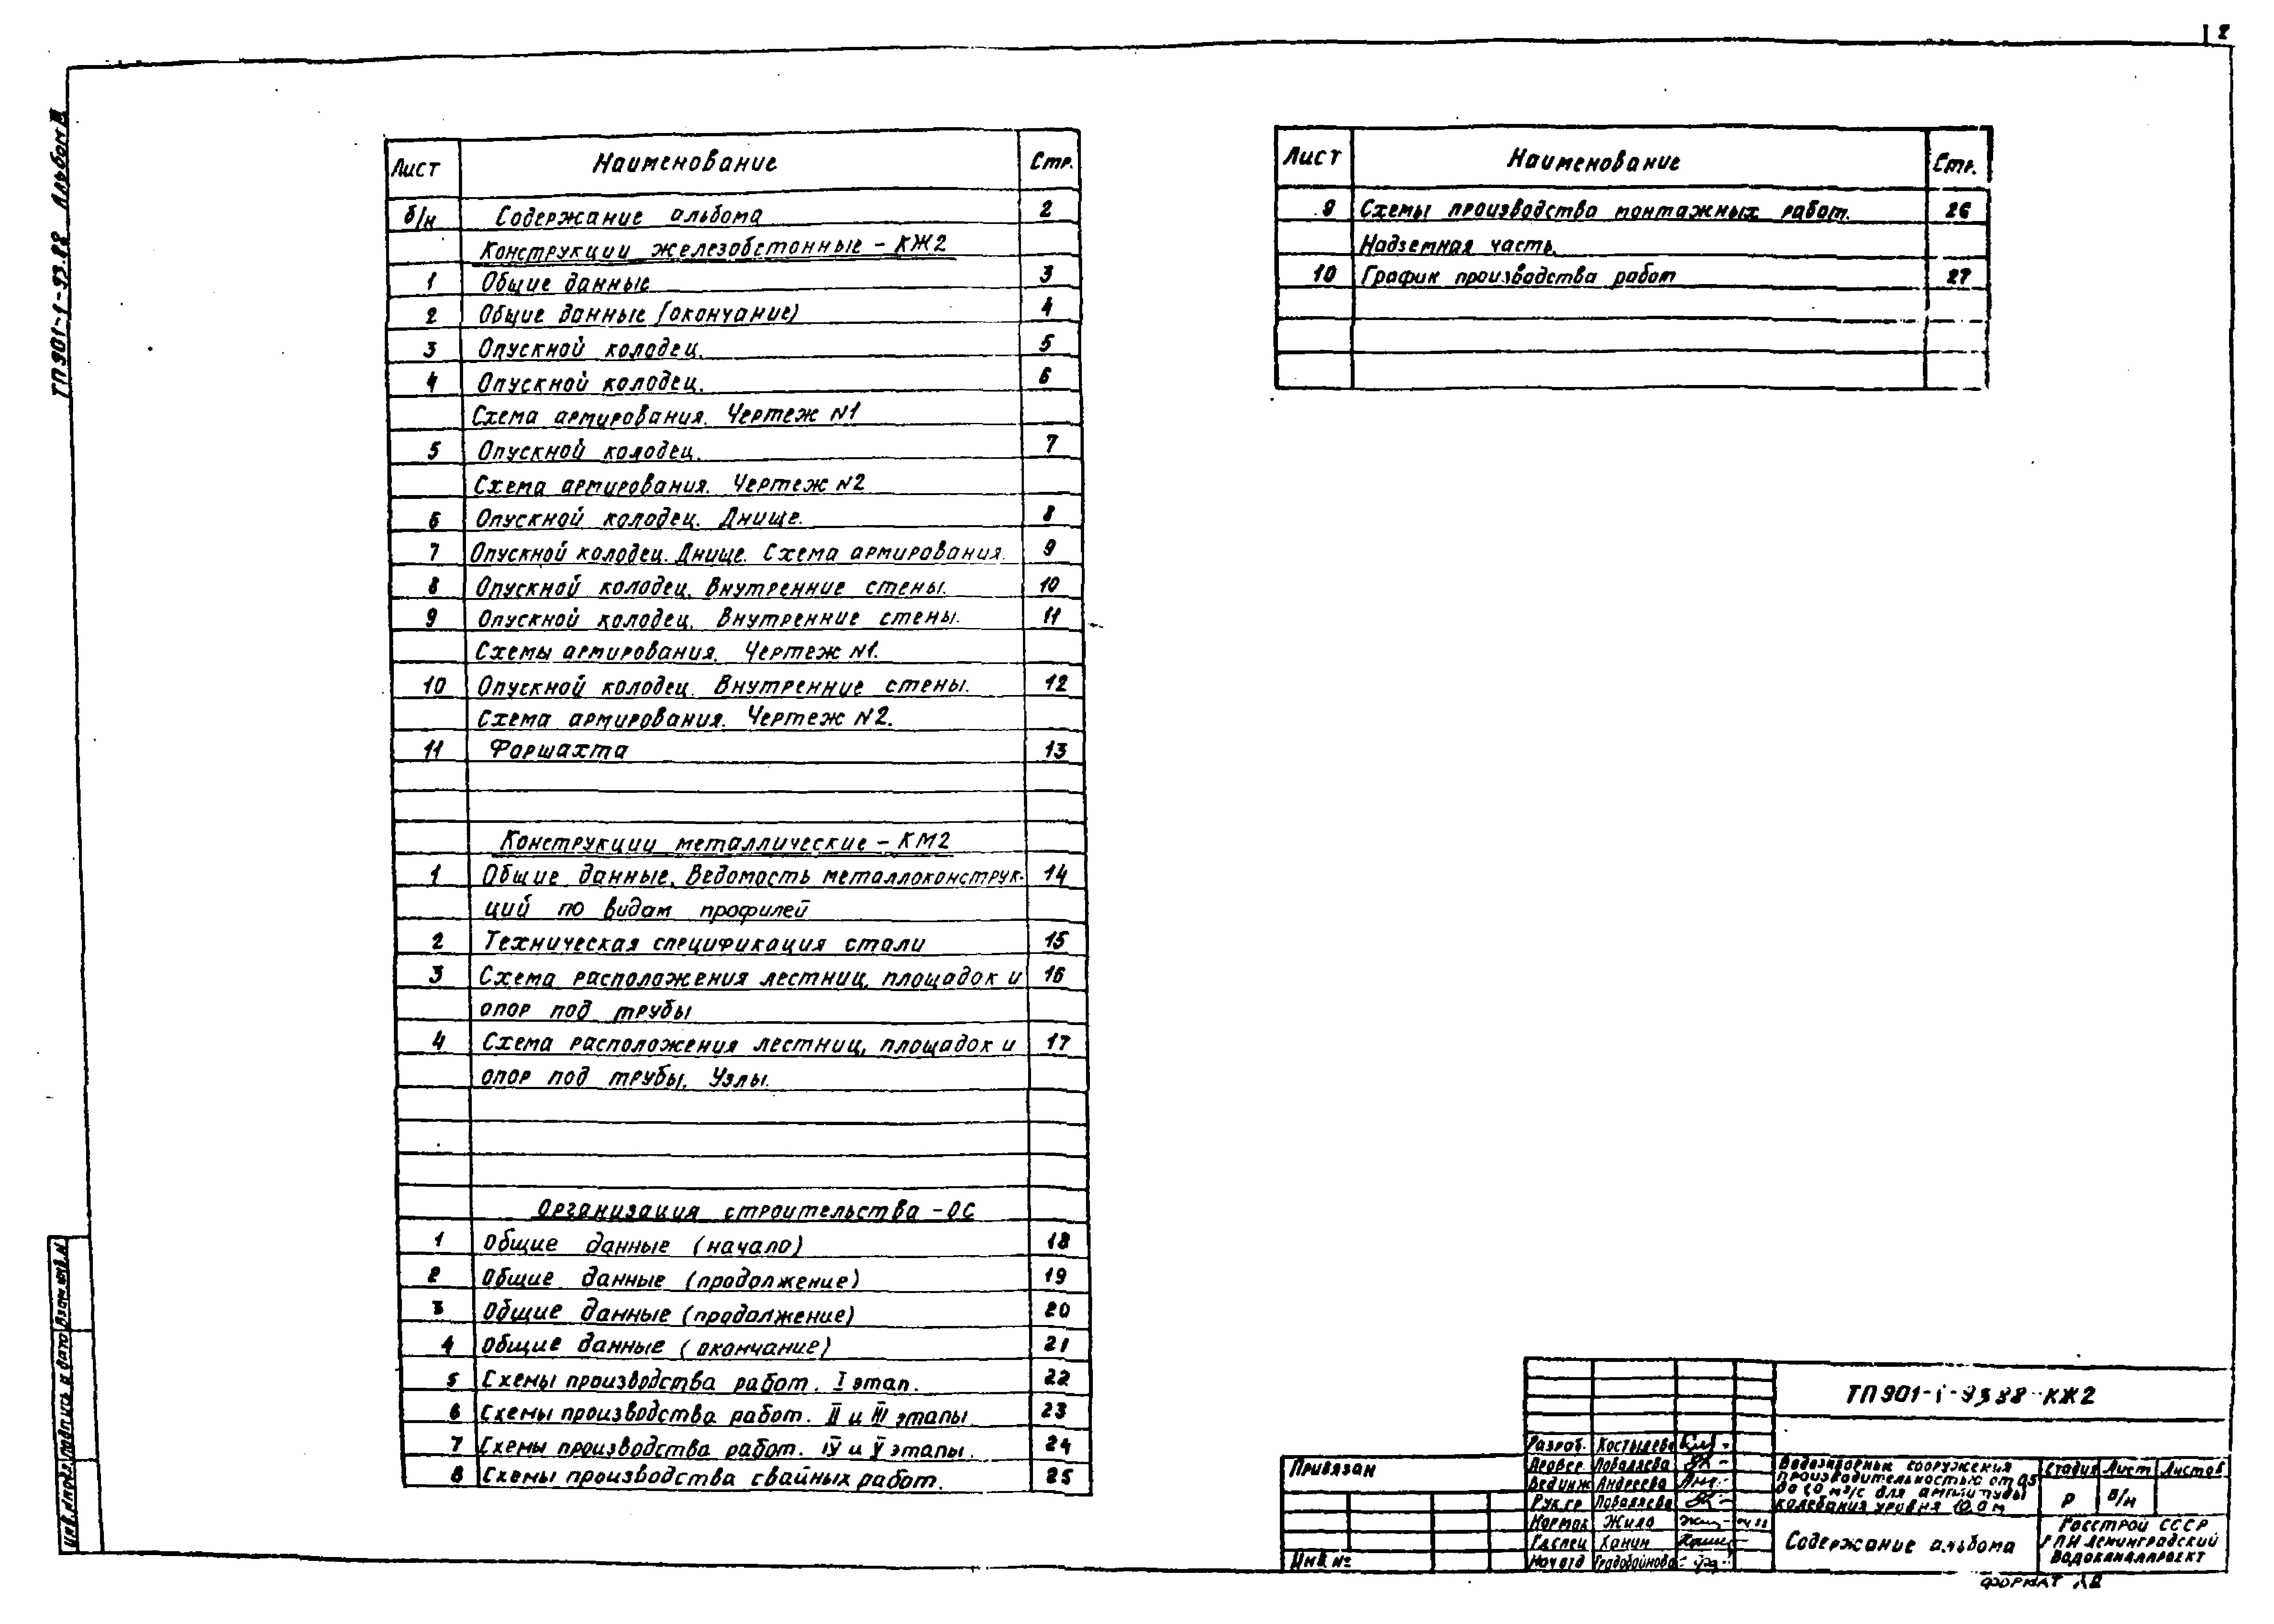 2
ТП 901-1-93.88 Альбом III
Лист Наименование Стр.
б/н Содержание альбома 2
Конструкции железобетонные - КЖ2
1 Общие данные 3
2 Общие данные (окончание) 4
3 Опускной колодец. 5
4 Опускной колодец. 6
Схема армирования. Чертеж N1
5 Опускной колодец. 7
Схема армирования. Чертеж N2
6 Опускной колодец. Днище. 8
7 Опускной колодец. Днище. Схема армирования. 9
8 Опускной колодец. Внутренние стены. 10
9 Опускной колодец. Внутренние стены. 11
Схемы армирования. Чертеж N1.
10 Опускной колодец. Внутренние стены. 12
Схема армирования. Чертеж N2.
11 Форшахта 13
Конструкции металлические - КМ2
1 Общие данные. Ведомость металлоконструк- 14
ций по видам профилей
2 Техническая спецификация стали 15
3 Схема расположения лестниц, площадок и 16
опор под трубы
4 Схема расположения лестниц, площадок и 17
опор под трубы. Узлы.
Организация строительства - ОС
1 Общие данные (начало) 18
2 Общие данные (продолжение) 19
3 Общие данные (продолжение) 20
4 Общие данные (окончание) 21
5 Схемы производства работ. I этап. 22
6 Схемы производства работ. II и III этапы. 23
7 Схемы производства работ. IV и V этапы. 24
8 Схемы производства свайных работ. 25
Лист Наименование Стр.
9 Схемы производства монтажных работ. 26
Надземная часть.
10 График производства работ 27
Инв.N подл. Подпись и дата Взам.инв.N
Привязан
Инв №
ТП 901-1-93.88 КЖ2
Разраб. Костылева
Провер. Ловаляева
Вед.инж Андреева
Рук.гр Ловаляева
Нормок Жила
Гл.спец Ханин
Нач.отд Градобойнова
Водозаборные сооружения
производительностью от 0,5
до 1,0 м³/с для амплитуды
колебания уровня 10,0 м
Стадия Лист Листов
Р б/н
Содержание альбома
Госстрой СССР
ГПИ Ленинградский
Водоканалпроект
Формат А2